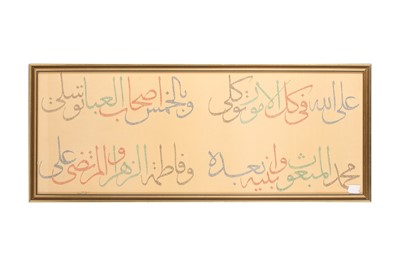 على الله في كل الامور توكلي وبالخمس اصحاب العبا توسلي
محمد المبعوث وابنيه بعده وفاطمة الزهراء والمرتضى علي